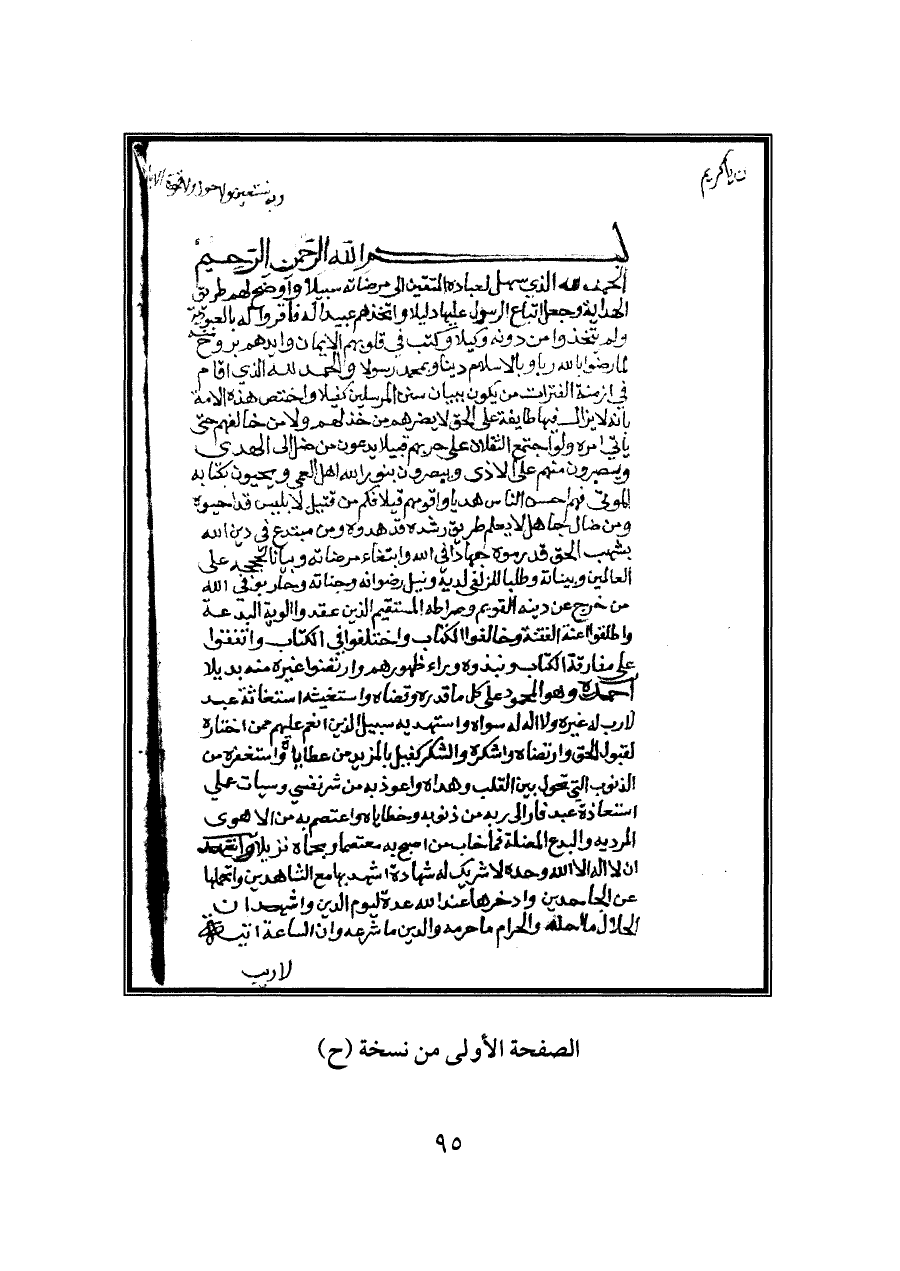 ت يا كريم
وبه نستعين ولا حول ولا قوة الا
بسم الله الرحمن الرحيم
الحمد لله الذي سهل لعباده المتقين الى مرضاته سبيلا وأوضح لهم طريق
الهداية وجعل اتباع الرسول عليها دليلا واتخذهم عبيدا له فأقروا له بالعبودية
ولم يتخذوا من دونه وكيلا وكتب في قلوبهم الإيمان وايدهم بروح منه
لما رضوا بالله ربا وبالاسلام دينا وبمحمد رسولا والحمد لله الذي اقام
في ازمنة الفترات من يكون ببيان سنن المرسلين كفيلا واختص هذه الامة
بأنه لا يزال فيها طايفة على الحق لا يضرهم من خذلهم ولا من خالفهم حتى
يأتي امره ولو اجتمع الثقلان على حربهم قبيلا يدعون من ضل الى الهدى
ويصبرون منهم على الاذى ويبصرون بنور الله اهل العمى ويحيون بكتابه
الموتى فهم احسن الناس هديا واقومهم قيلا فكم من قتيل لابليس قد احيوه
ومن ضال جاهل لا يعلم طريق رشده قد هدوه ومن مبتدع في دين الله
بشهب الحق قد رموه جهادا في الله وابتغاء مرضاته وبيانا لحججه على
العالمين وبيناته وطلبا للزلفى لديه ونيل رضوانه وجناته وحاربوا في الله
من خرج عن دينه القويم وصراطه المستقيم الذين عقدوا الوية البدعة
واطلقوا اعنة الفتنة وخالفوا الكتاب واختلفوا في الكتاب واتفقوا
على مفارقة الكتاب ونبذوه وراء ظهورهم وارتضوا غيره منه بديلا
احمده وهو المحمود على كل ما قدره وقضاه واستغيثه استغاثة عبد
لا رب له غيره ولا اله له سواه واستهديه سبيل الذين انعم عليهم ممن اختاره
لقبول الحق وارتضاه واشكره والشكر كفيل بالمزيد من عطاياه واستغفره من
الذنوب التي تحول بين القلب وهداه واعوذ به من شر نفسي وسيات عملي
استعاذة عبد فار الى ربه من ذنوبه وخطاياه واعتصم به من الاهوى
المرديه والبدع المضلة فما خاب من اصبح به معتصما وبحماه نزيلا واشهد
ان لا اله الا الله وحده لا شريك له شهادة اشهد بها مع الشاهدين واتحملها
عن الجاحدين وادخرها عند الله عدة ليوم الدين واشهد ان
الحلال ما احله والحرام ما حرمه والدين ما شرعه وان الساعة اتية
لا ريب
الصفحة الأولى من نسخة (ح)
٩٥